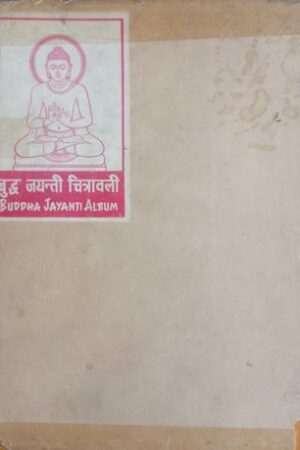 बुद्ध जयन्ती चित्रावली
BUDDHA JAYANTI ALBUM